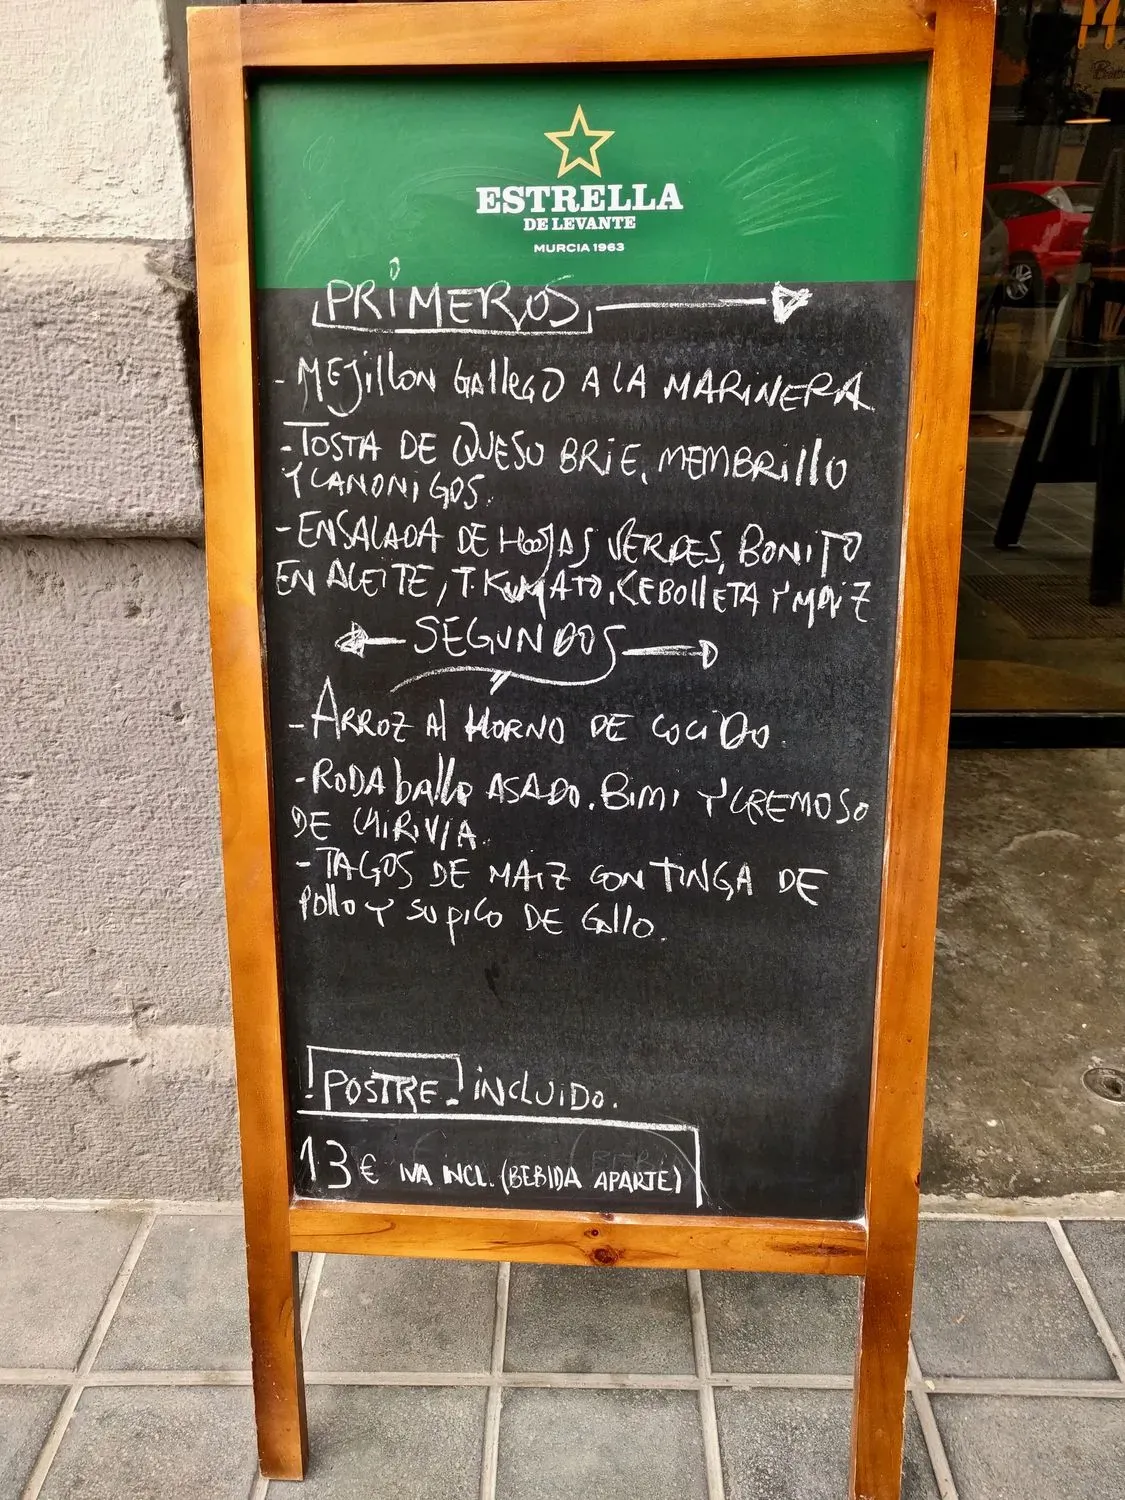 ESTRELLA
DE LEVANTE
MURCIA 1963
PRIMEROS
- MEJILLON GALLEGO A LA MARINERA
- TOSTA DE QUESO BRIE, MEMBRILLO
Y CANONIGOS.
- ENSALADA DE HOJAS VERDES, BONITO
EN ACEITE, T. KUMATO, CEBOLLETA Y MAIZ
SEGUNDOS
- ARROZ AL HORNO DE COCIDO.
- RODABALLO ASADO. BIMI Y CREMOSO
DE CHIRIVIA.
- TACOS DE MAIZ CON TINGA DE
POLLO Y SU PICO DE GALLO.
POSTRE INCLUIDO.
13€ IVA INCL. (BEBIDA APARTE)